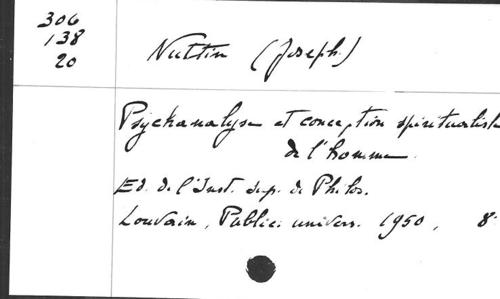 306
138
20
Nuttin (Joseph)
Psychanalyse et conception spiritualiste
de l'homme.
Ed. de l'Inst. sup. de Philos.
Louvain, Public. univers. 1950, 8°